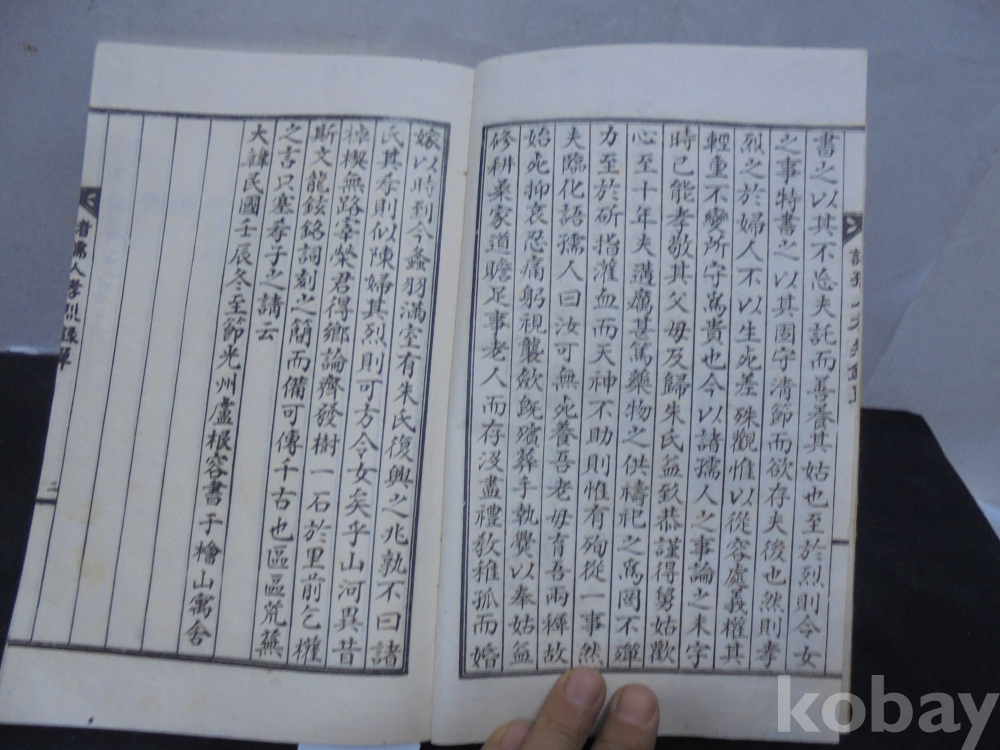 書之以其不忘夫託而善養其姑也至於烈則令女
之事特書之以其固守清節而欲存夫後也然則孝
烈之於婦人不以生死差殊觀惟以從容處義權其
輕重不變所守爲貴也今以諸孺人之事論之未字
時已能孝敬其父母及歸朱氏益致恭謹得舅姑歡
心至十年夫遘厲甚篤藥物之供禱祀之爲罔不殫
力至於斫指灌血而天神不助則惟有殉從一事然
夫臨化語孺人曰汝可無死養吾老母育吾兩稚故
始死抑哀忍痛躬視襲斂旣殯葬手執爨以奉姑益
修耕桑家道贍足事老人而存沒盡禮敎稚孤而婚
嫁以時到今螽羽滿室有朱氏復興之兆孰不曰諸
氏其孝則似陳婦其烈則可方令女矣乎山河異昔
棹楔無路宰榮君得鄉論齊發樹一石於里前乞權
斯文龍鉉銘詞刻之簡而備可傳千古也區區荒蕪
之言只塞孝子之請云
大韓民國壬辰冬至節光州盧根容書于檜山寓舍
諸孺人孝烈錄單
二
kobay